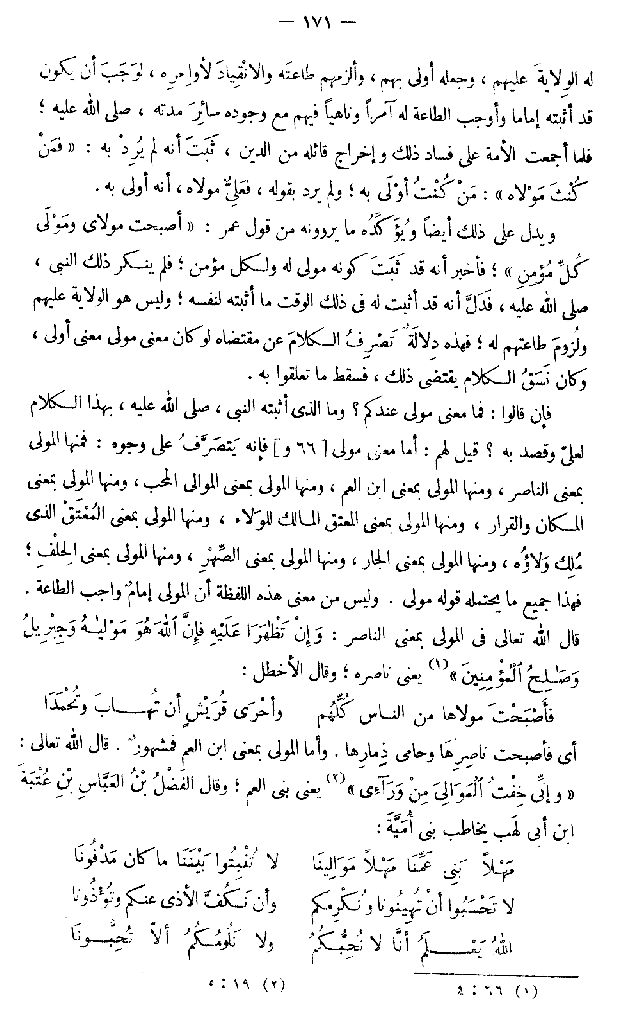 — ١٧١ —
له الوِلايةَ عليهم ، وجعله أولى بهم ، وألزمهم طاعتَه والانْقِيادَ لأوامره ، لوَجَبَ أن يكون
قد أثبته إماما وأوجب الطاعة له آمراً وناهياً فيهم مع وجوده سائرَ مدته ، صلى الله عليه ؛
فلما أجمعت الأمة على فساد ذلك وإخراجِ قائله من الدين ، ثَبَتَ أنه لم يُرِدْ به : « فَمَنْ
كُنْتَ مَوْلاه » : مَنْ كُنْتُ أوْلَى به ؛ ولم يرد بقوله ، فَعَلِيٌّ مولاه ، أنه أولى به .
ويدل على ذلك أيضاً ويُؤَكِّدُه ما يروونه من قول عمر : « أصبحت مولاى ومَوْلَى
كُلِّ مُؤْمِنٍ » ؛ فأخبر أنه قد ثَبَتَ كونه مولى له ولكل مؤمن ؛ فلم ينكر ذلك النبى ،
صلى الله عليه ، فَدَلَّ أنه قد أثبت له فى ذلك الوقت ما أثبته لنفسه ؛ وليس هو الولاية عليهم
ولُزومَ طاعتهم له ؛ فهذه دِلالَةٌ تَصْرِفُ الكلامَ عن مقتضاه لو كان معنى مولى معنى أولى ،
وكان نَسَقُ الكلام يقتضى ذلك ، فسقط ما تعلقوا به .
فإن قالوا : فما معنى مولى عندكم ؟ وما الذى أثبته النبى ، صلى الله عليه ، بهذا الكلام
لعلىّ وقصد به ؟ قيل لهم : أما معنى مولى [ ٦٦ و ] فإنه يَتَصَرَّفُ على وجوه : فمنها المولى
بمعنى الناصر ، ومنها المولى بمعنى ابن العم ، ومنها المولى بمعنى الموالى المحب ، ومنها المولى بمعنى
المكان والقرار ، ومنها المولى بمعنى المعتق المالك للوَلاء ، ومنها المولى بمعنى المُعْتَق الذى
مُلِكَ وَلاؤُه ، ومنها المولى بمعنى الجار ، ومنها المولى بمعنى الصِّهْر ، ومنها المولى بمعنى الحِلْفِ ؛
فهذا جميع ما يحتمله قوله مولى . وليس من معنى هذه اللفظة أن المولى إمامٌ واجب الطاعة .
قال الله تعالى فى المولى بمعنى الناصر : وَإِنْ تَظَهَرَا عَلَيْهِ فَإِنَّ ٱللهَ هُوَ مَوْلَيٰهُ وَجِبْرِيلُ
وَصَٰلِحُ ٱلْمُؤْمِنِينَ » (١) يعنى ناصره ؛ وقال الأخطل :
فَأَصْبَحْتَ مولاها من الناس كُلُّهم وأحْرَى قُرَيْشٍ أن تُهابَ وتُحْمَدَا
أى فأصبحت ناصرها وحامى ذِمارِها . وأما المولى بمعنى ابن العم فمشهورٌ . قال الله تعالى :
« وإنِّى خِفْتُ ٱلْمَوَالِىَ مِنْ وَرَآءِى » (٢) يعنى بنى العم ؛ وقال الفَضْلُ بْنُ العَبَّاس بْنِ عُتْبَةَ
ابن أبى لهب يخاطب بنى أُمَيَّةَ :
مَهْلاً بَنِى عَمِّنَا مَهْلاً مَوَالِينَا لا تُنْبِتُوا بَيْنَنَا ما كان مَدْفُونَا
لا تَحْسَبُوا أنْ تُهِينُونا ونُكْرِمكم وأن نَكُفَّ الأذى عنكم وتُؤْذُونا
اللهُ يَعْلَمُ أنَّا لا نُحِبُّكُمُ ولا نَلُومُكُمُ ألاَّ تُحِبُّونَا
(١) ٦٦ : ٤ (٢) ١٩ : ٥